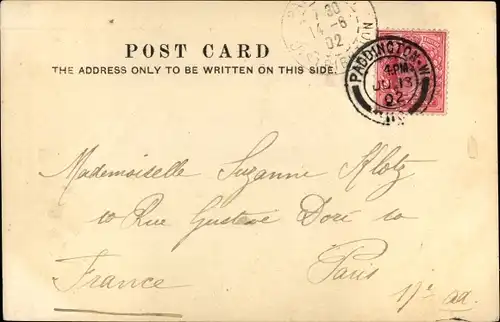 7 30
14-6
02
POST CARD
THE ADDRESS ONLY TO BE WRITTEN ON THIS SIDE.
PADDINGTON.W.
4.PM
JU 13
02
Mademoiselle Suzanne Klotz
10 Rue Gustave Doré 10
Paris
France
17e